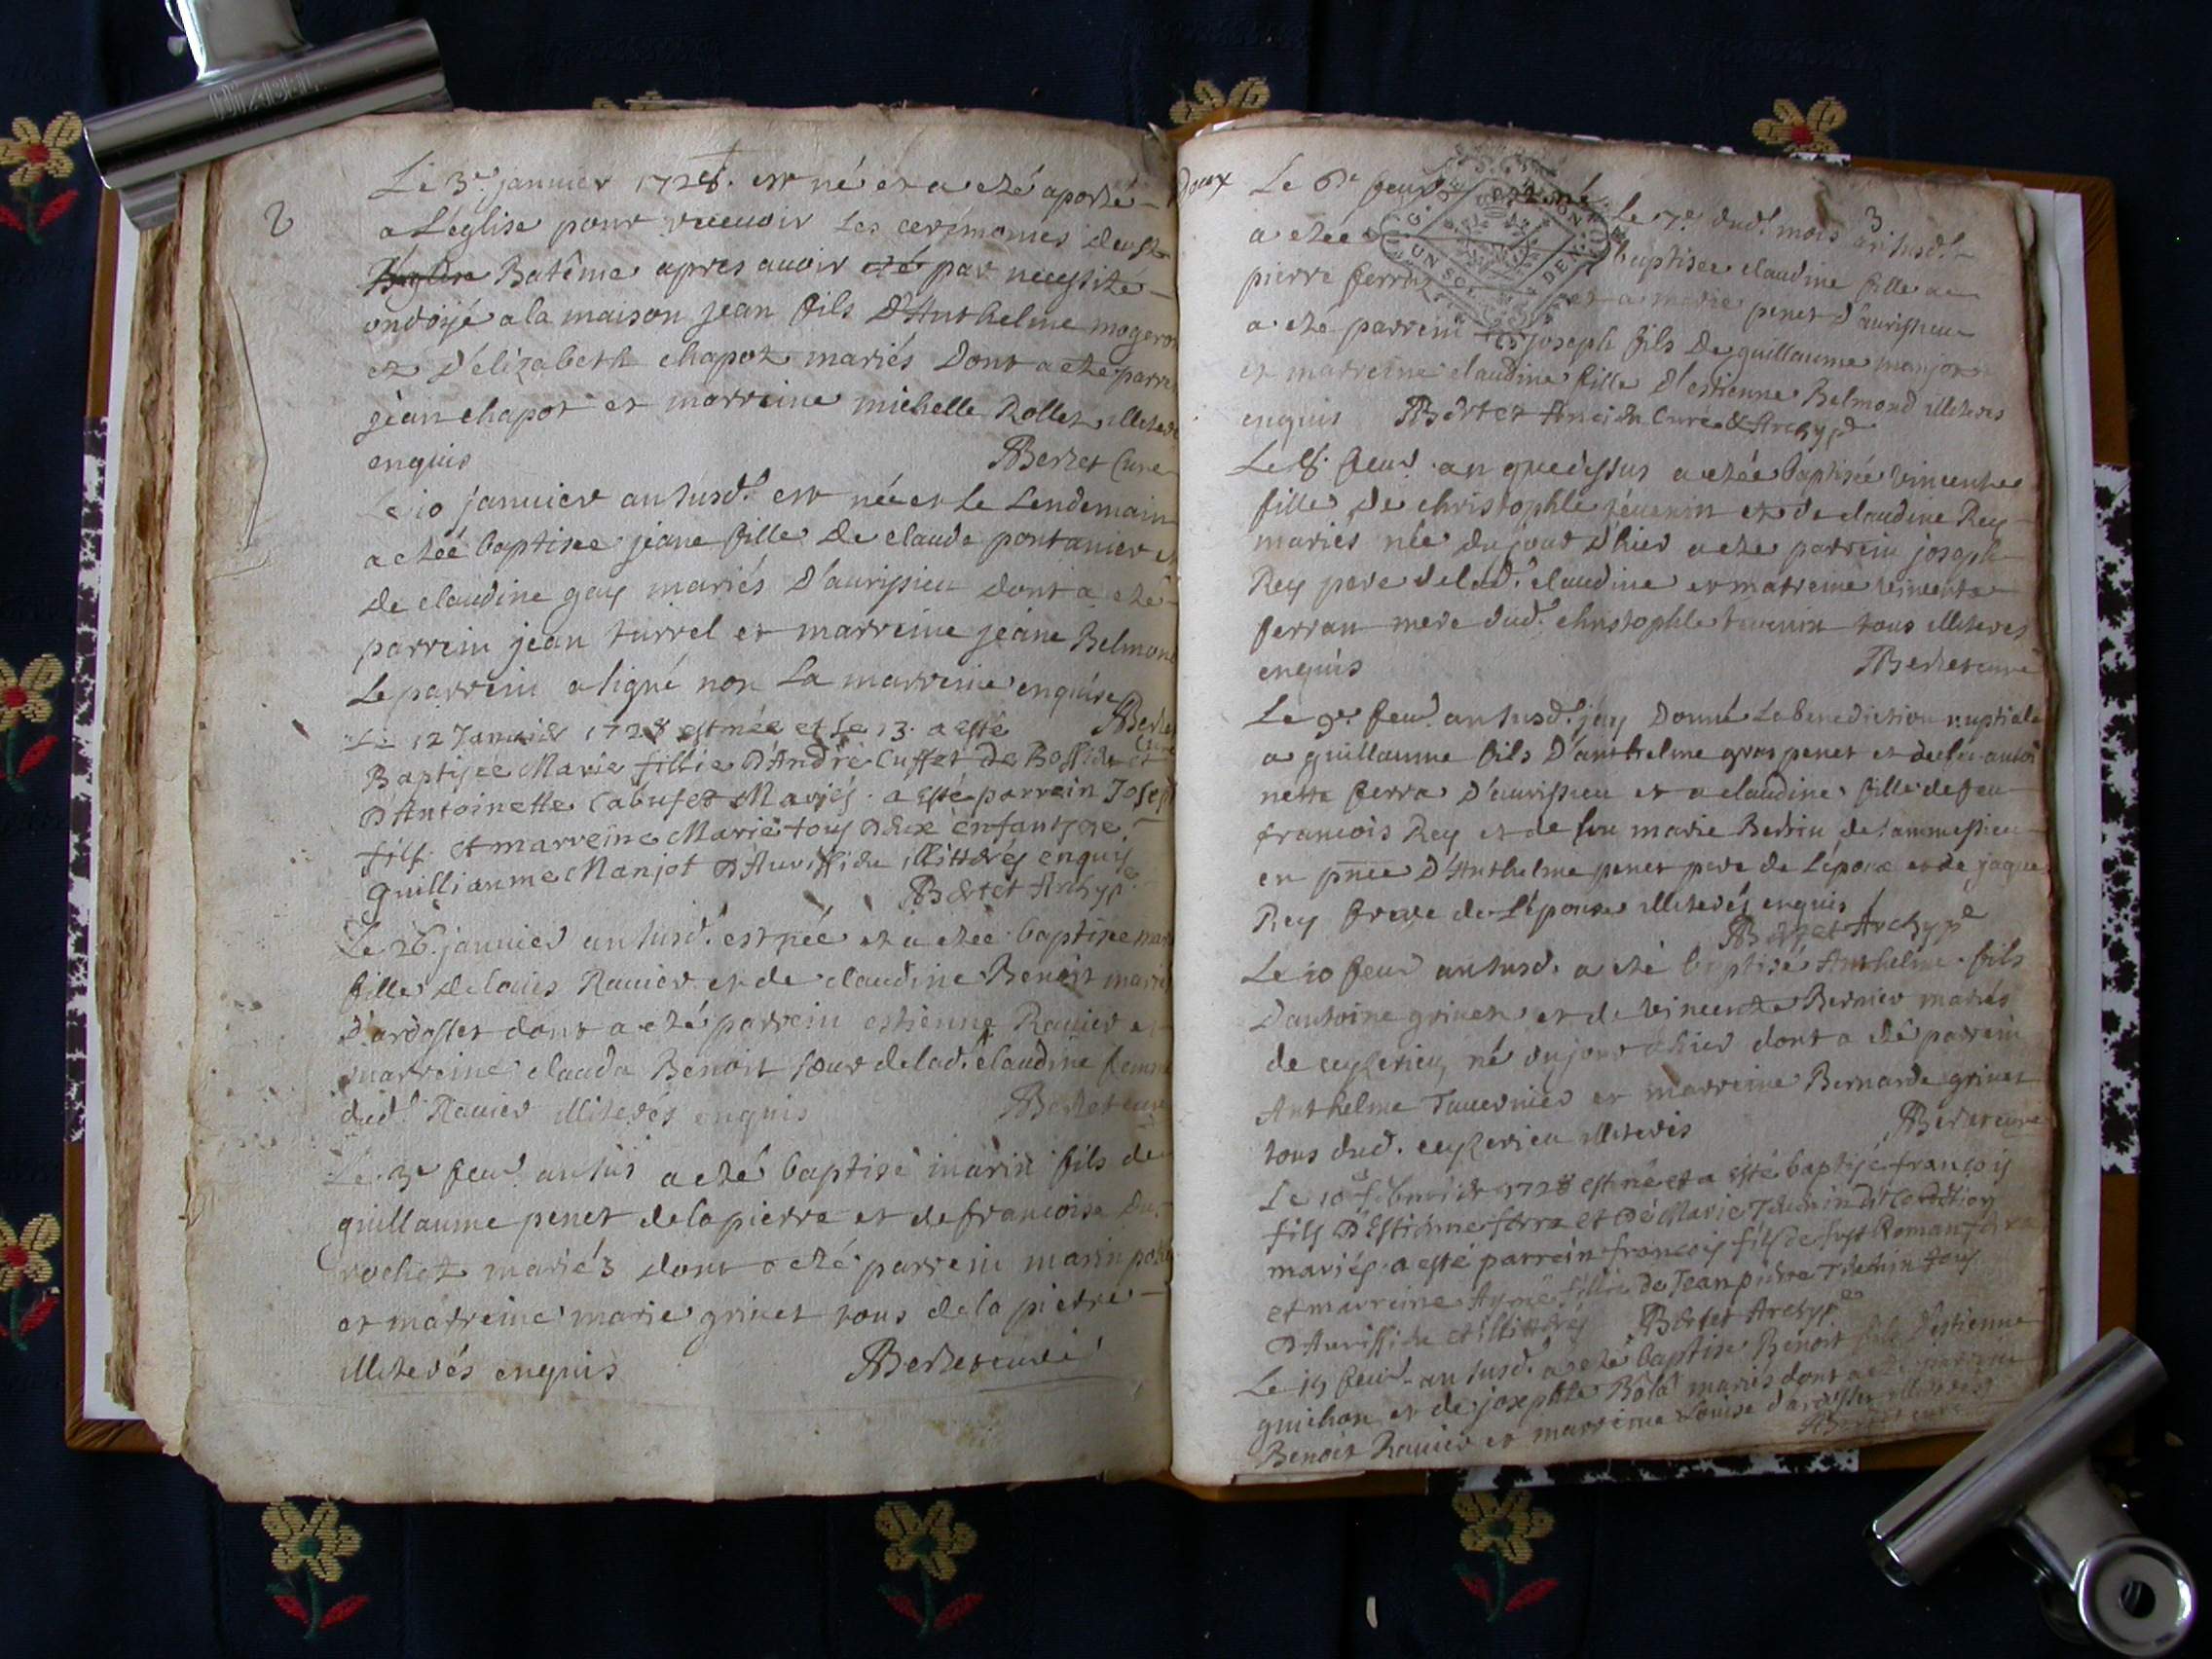 2
Le 3e. janvier 1728. est né et a eté aporté
a L'église pour recevoir Les cerémonies du st
Batême apres avoir eté par necessité
ondoÿé a la maison jean fils D'Anthelme mogeron
et D'elizabeth chapot mariés Dont a eté parrein
jean chapot et marreine michelle Rollet illiteré
enquis
Bertet Curé
Le 10 janvier an susd. est née et le Lendemain
a etéé baptisee jeane fille De claude pontanier et
De claudine gay mariés D'aurissieu Dont a eté
parrein jean turrel et marreine jeane Belmond
Le parrein a signé non La marreine enquise
Bertet Curé
Le 12 Janvier 1728 est née et Le 13. a esté
Baptisée Marie fillie D'André Cuffet De
D'Antoinette Cabuset Mariés. a esté parrein Joseph
fils et marreine Marie tous Deux enfants de
Guilliaume Manjot D'Aurissieu illittérés enquis
Bertet Archyp.
Le 26. janvier an susd. est née et a etée baptisee
fille De louis Ravier et de claudine Benoit mariés
D'ardosset dont a eté parrein estienne Ravier et
marreine clauda Benoit soeur de lad. claudine femme
dud. Ravier illiterés enquis
Bertet curé
Le 3e fevr. an sus a eté baptisé marin fils de
guillaume penet de la pierre et de francoise Du
rochet mariés dont a eté parrein marin
et marreine marie grinet tous de la pierre
illiterés enquis
Bertet curé
3
Le 6e fevr.
Le 7e. dud. mois an susd.
a etée baptisee claudine fille a
pierre ferra et a marie penet D'aurissieu
a eté parrein joseph fils De guillaume manjot
et marreine claudine fille D'estienne Belmond illiterés
enquis Bertet Ancien Curé & Archyp.
Le 8. fevr. an que dessus a etée baptisée vincente
fille De christophle tévenin et de claudine Rey
mariés née du jour D'hier a eté parrein joseph
Rey pere de lad. claudine et marreine vincente
ferran mere dud. christophle tevenin tous illiterés
enquis
Bertet curé
Le 9e. fevr. an susd. jay Donné La benediction nuptiale
a guillaume fils D'anthelme gros penet et
nette ferra D'aurissieu et a claudine fille de feu
francois Rey et de feu marie Bertin de
en pnce D'Anthelme penet pere de L'époux et de jaque
Rey frere de L'épouse illiterés enquis
Bertet Archyp.
Le 10 fevr an susd. a eté baptisé Anthelme fils
D'antoine grinet et de vincente Bernier mariés
de ceyzerieu né du jour d'hier dont a eté parrein
Anthelme Tavernier et marreine Bernarde grinet
tous dud. ceyzerieu illiterés
Bertet curé
Le 10e febvrier 1728 est né et a esté baptisé françois
fils D'Estienne ferra et De Marie Tevenin
mariés a esté parrein françois fils de
et marreine Aymé fillie de Jean pierre Tevenin tous
D'Aurissieu et illittérés
Bertet Archyp.
Le 15 fevr. an susd. a eté baptisé Benoit fils D'estienne
guichon et de josephte mariés dont a eté parrein
Benoit Ravier et marreine Louise d'ardosset illiterés
Bertet curé